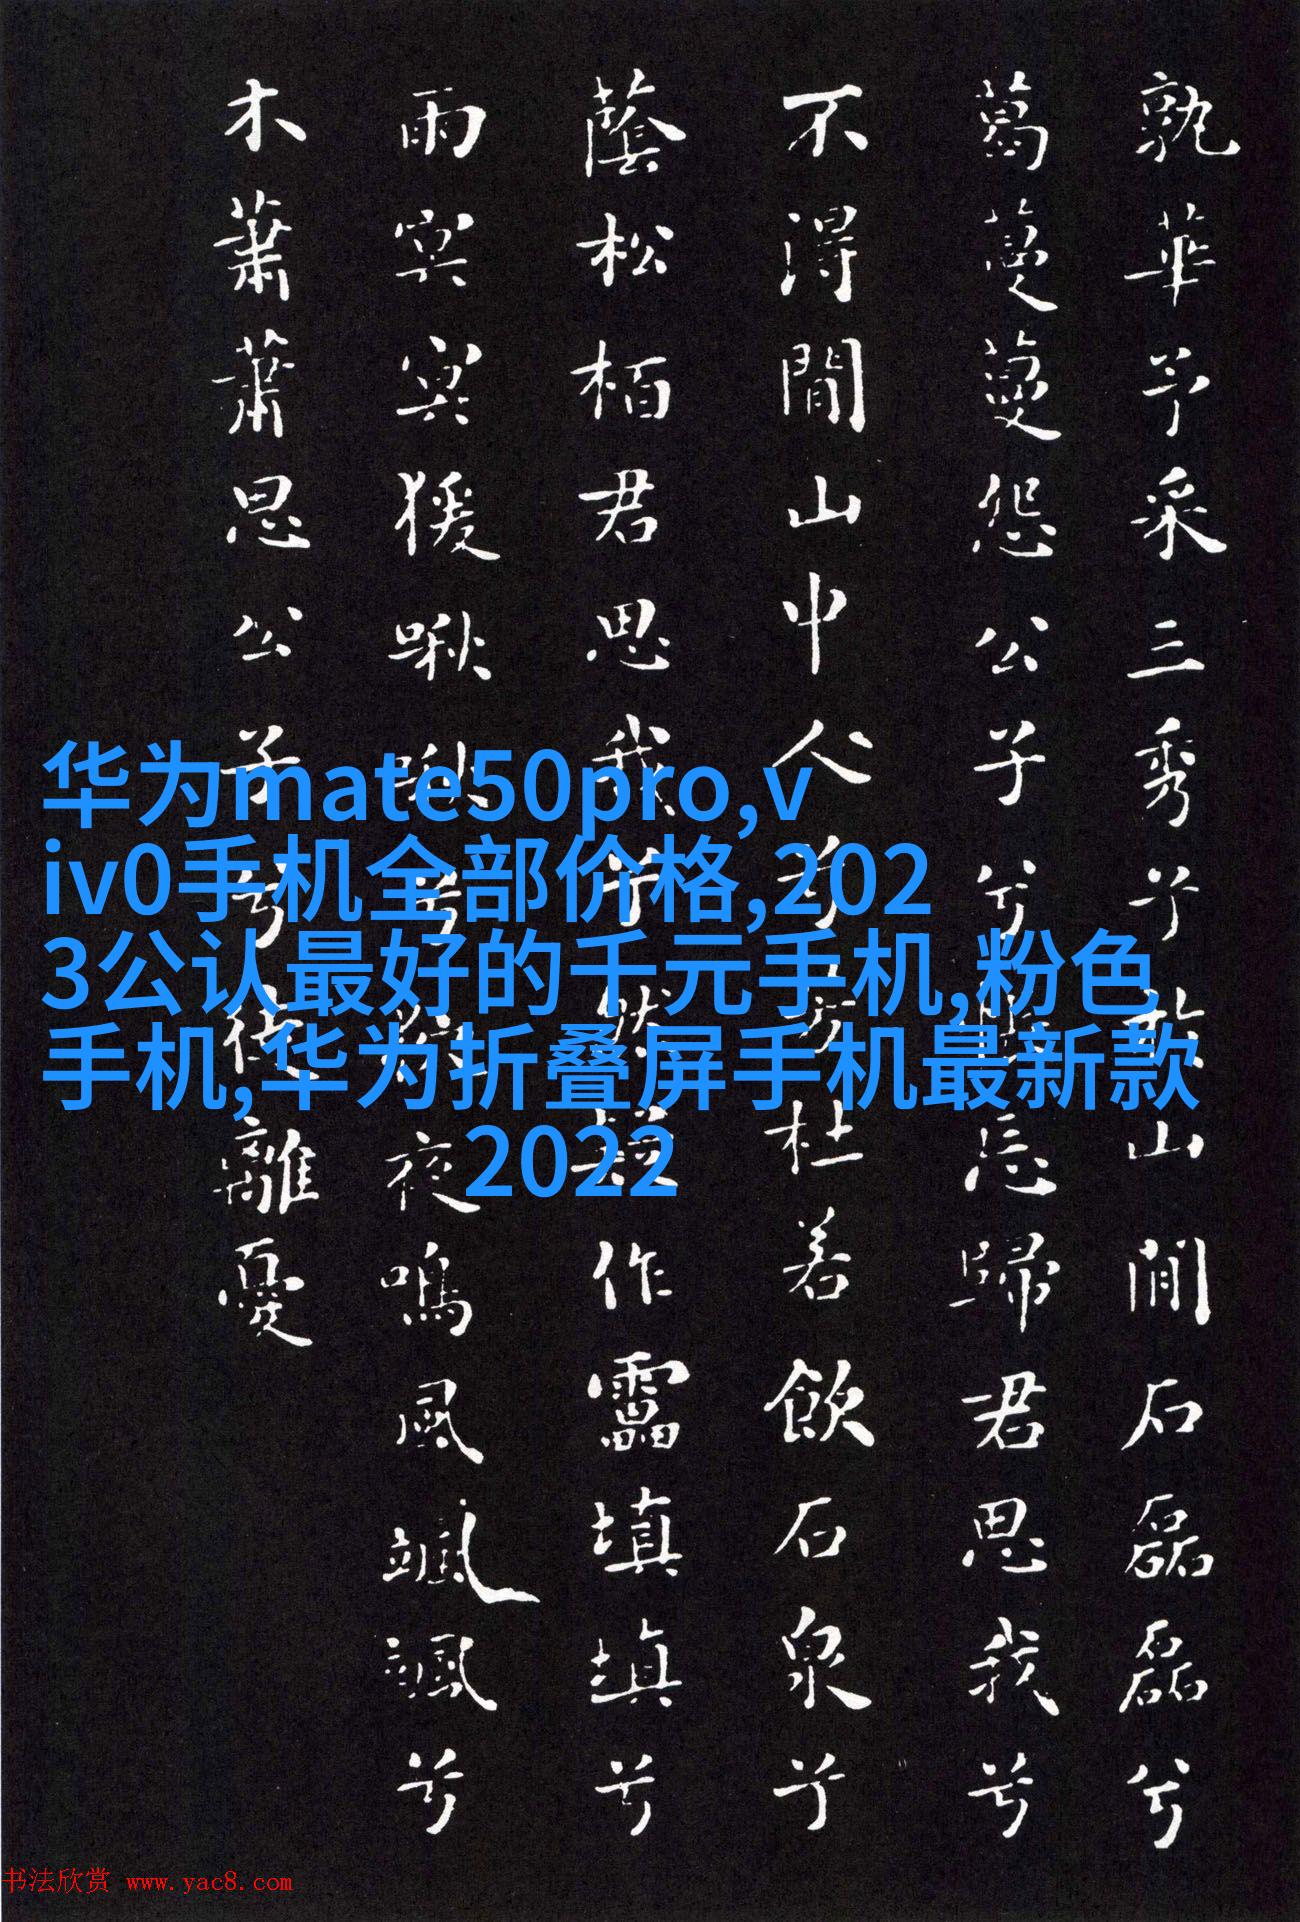 孰華予采三秀兮於山間石磊磊兮
葛蔓蔓怨公子兮悵忘歸君思我兮
不得閒山中人兮芳杜若飲石泉兮
蔭松栢君思我兮然疑作靁填填兮
雨冥冥猨啾啾兮狖夜鳴風颯颯兮
木蕭蕭思公子兮徒離憂
华为mate50pro,v
iv0手机全部价格,202
3公认最好的千元手机,粉色
手机,华为折叠屏手机最新款
2022
书法欣赏 www.yac8.com